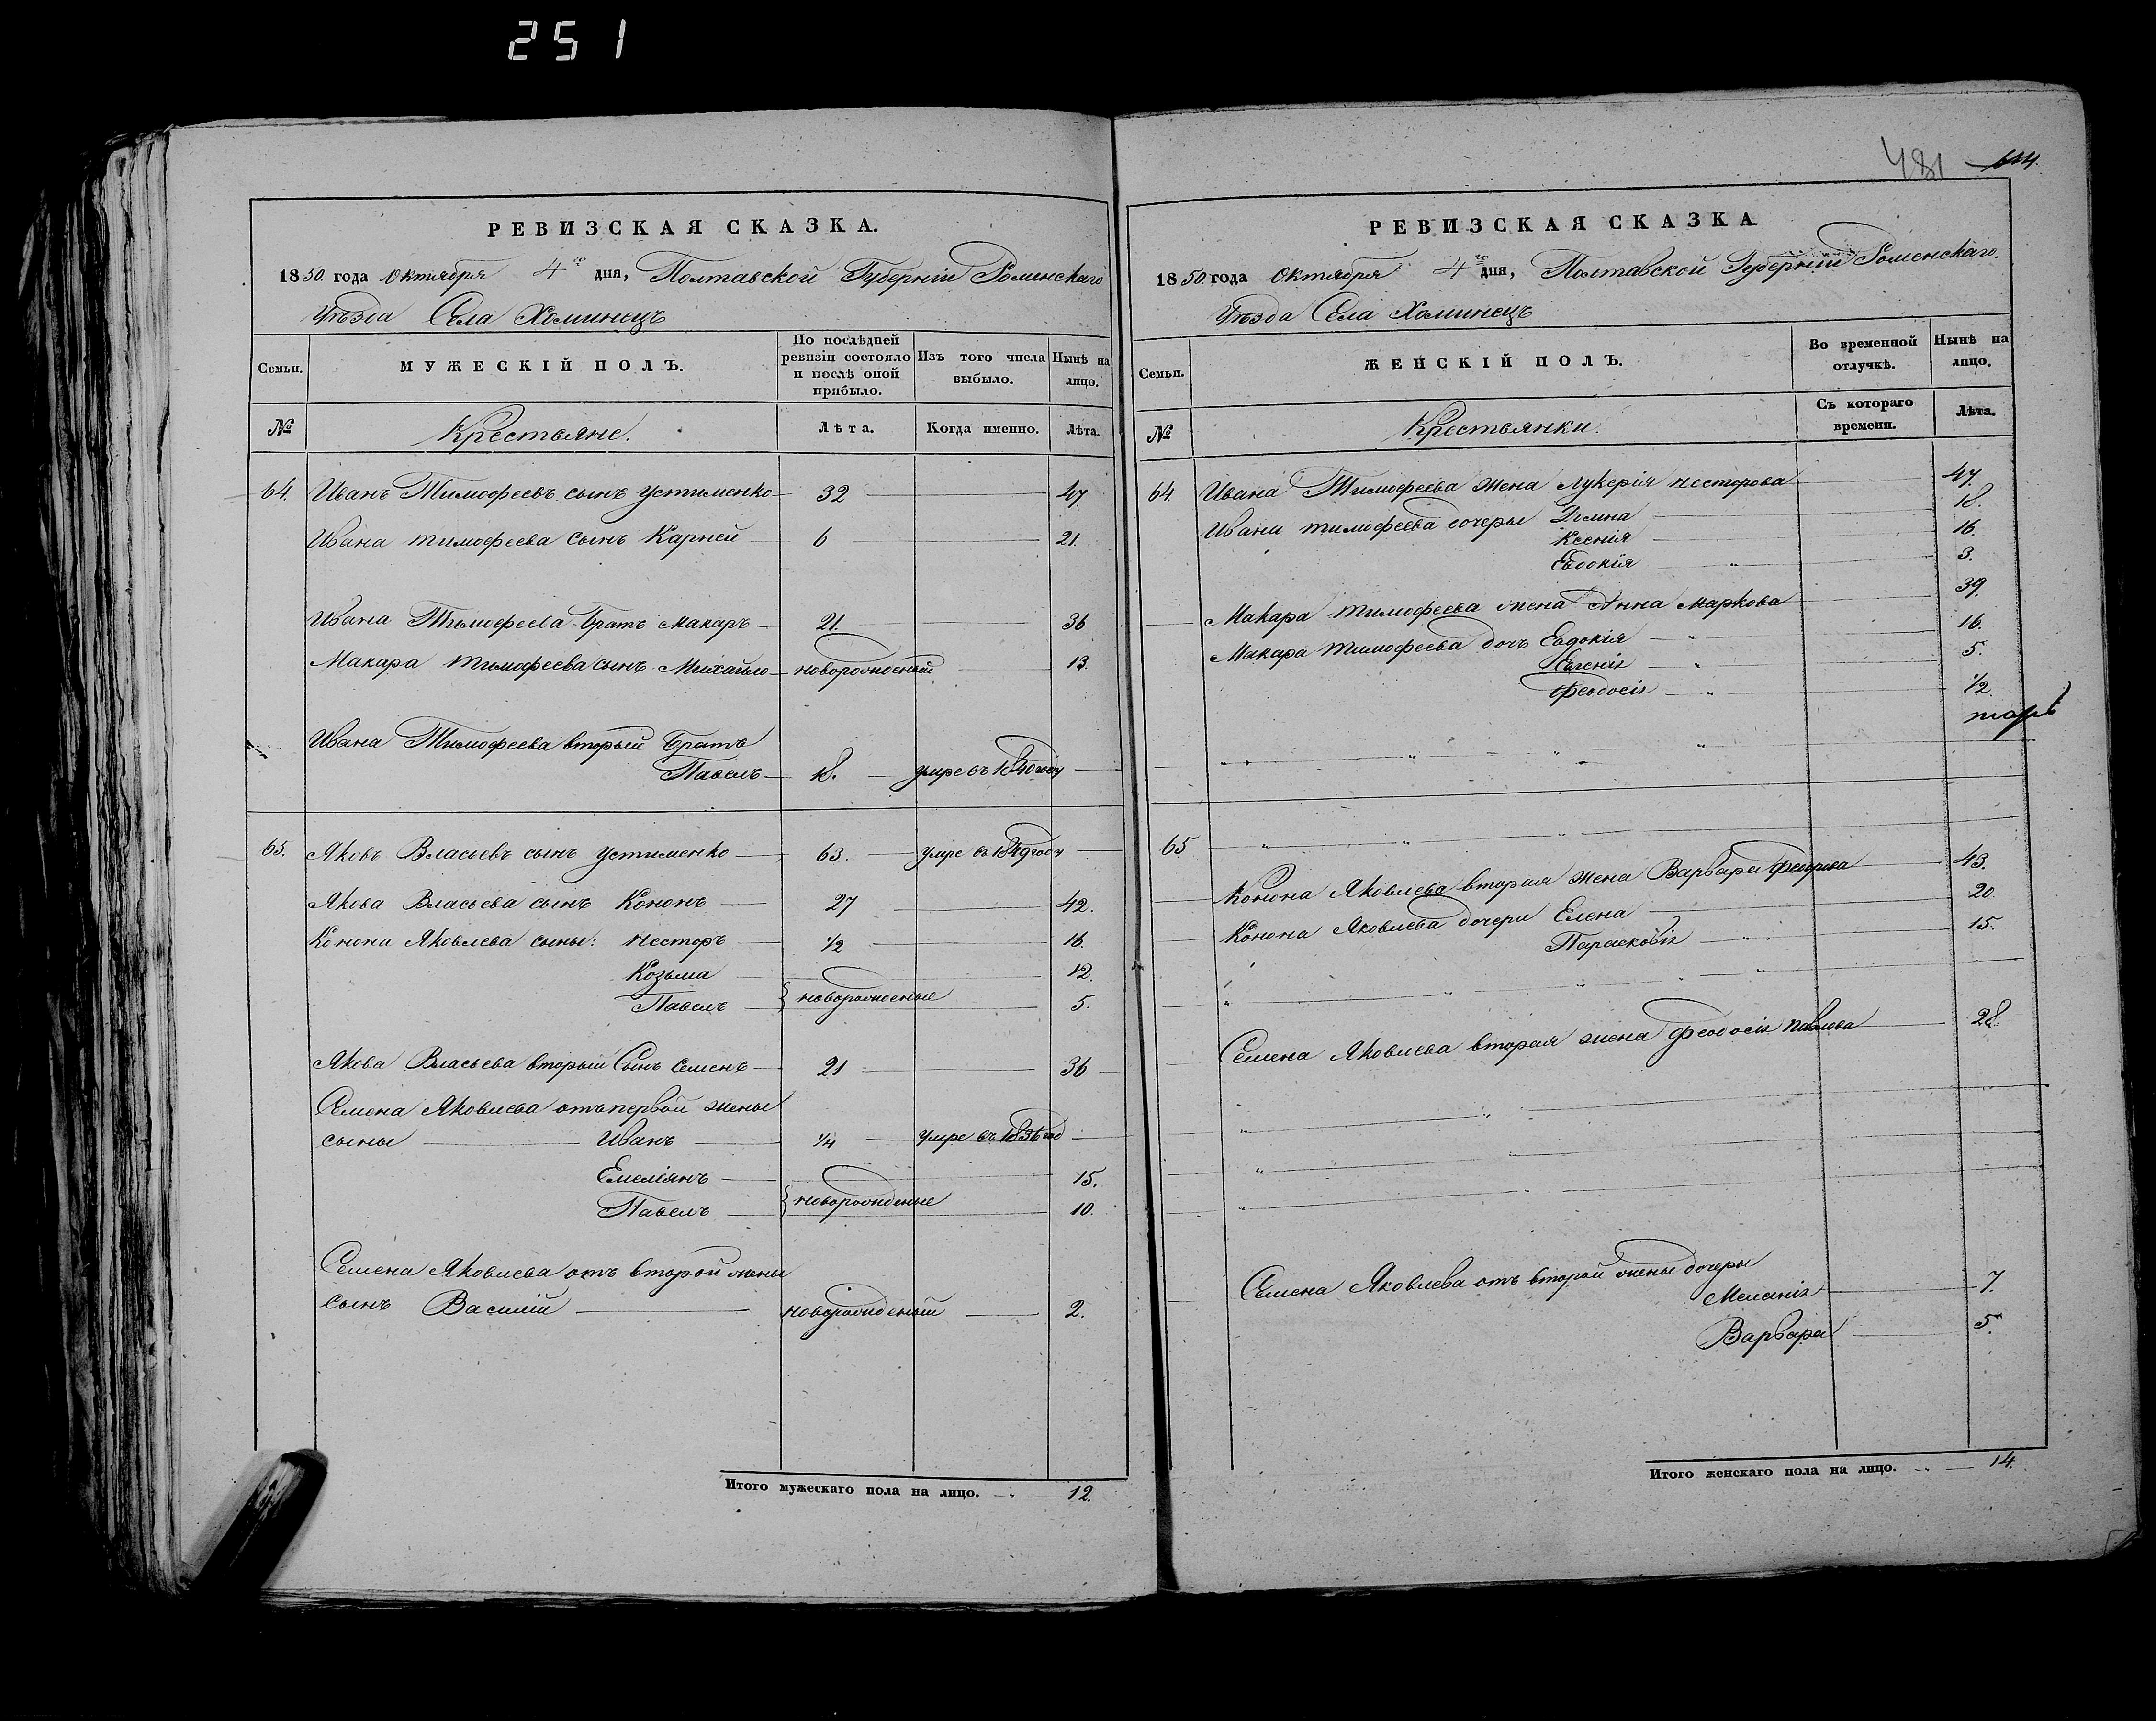 251
РЕВИЗСКАЯ СКАЗКА.
1850. года Октября 4го дня, Полтавской Губерніи Роменскаго
Уѣзда Села Хоминецъ
Семьи.
МУЖЕСКІЙ ПОЛЪ.
По послѣдней ревизіи состояло и послѣ оной прибыло.
Изъ того числа выбыло.
Нынѣ на лицо.
№ Крестьяне. Лѣта. Когда именно. Лѣта.
64. Иванъ Тимофеевъ сынъ Устименко 32 47.
Ивана Тимофеева сынъ Карней 6 21.
Ивана Тимофеева братъ Макаръ 21. 36
Макара Тимофеева сынъ Михайло новорожденый 13.
Ивана Тимофеева вторый братъ
Павелъ 18. умре въ 1840 году
65. Яковъ Власьевъ сынъ Устименко 63. умре въ 1849 году
Якова Власьева сынъ Кононъ 27 42.
Конона Яковлева сыны: Несторъ 1/2 16.
Козьма 12.
Павелъ новорожденые 5.
Якова Власьева вторый сынъ Семенъ 21 36
Семена Яковлева отъ первой жены
сыны Иванъ 1/4 умре въ 1836 год
Емеліянъ 15.
Павелъ новорожденые 10.
Семена Яковлева отъ второй жены
сынъ Василій новорожденый 2.
Итого мужескаго пола на лицо. 12.
481 644.
РЕВИЗСКАЯ СКАЗКА
1850. года Октября 4го дня, Полтавской Губерніи Роменскаго.
Уѣзда Села Хоминецъ
Семьи.
ЖЕНСКІЙ ПОЛЪ.
Во временной отлучкѣ.
Нынѣ на лицо.
№ Крестьянки. Съ котораго времени. Лѣта.
64. Ивана Тимофеева жена Лукерія Несторова 47.
Ивана Тимофеева дочеры Домна 18.
Ксенія 16.
Евдокія 3.
Макара Тимофеева жена Анна Маркова 39.
Макара Тимофеева дочь Евдокія 16.
Евгенія 5.
Феодосія 1/2.
65
Конона Яковлева вторая жена Варвара Федорова 43.
Конона Яковлева дочери Елена 20.
Парасковія 15.
Семена Яковлева вторая жена Феодосія Павлова 28.
Семена Яковлева отъ второй жены дочеры
Меланія 7.
Варвара 5.
Итого женскаго пола на лицо. 14.